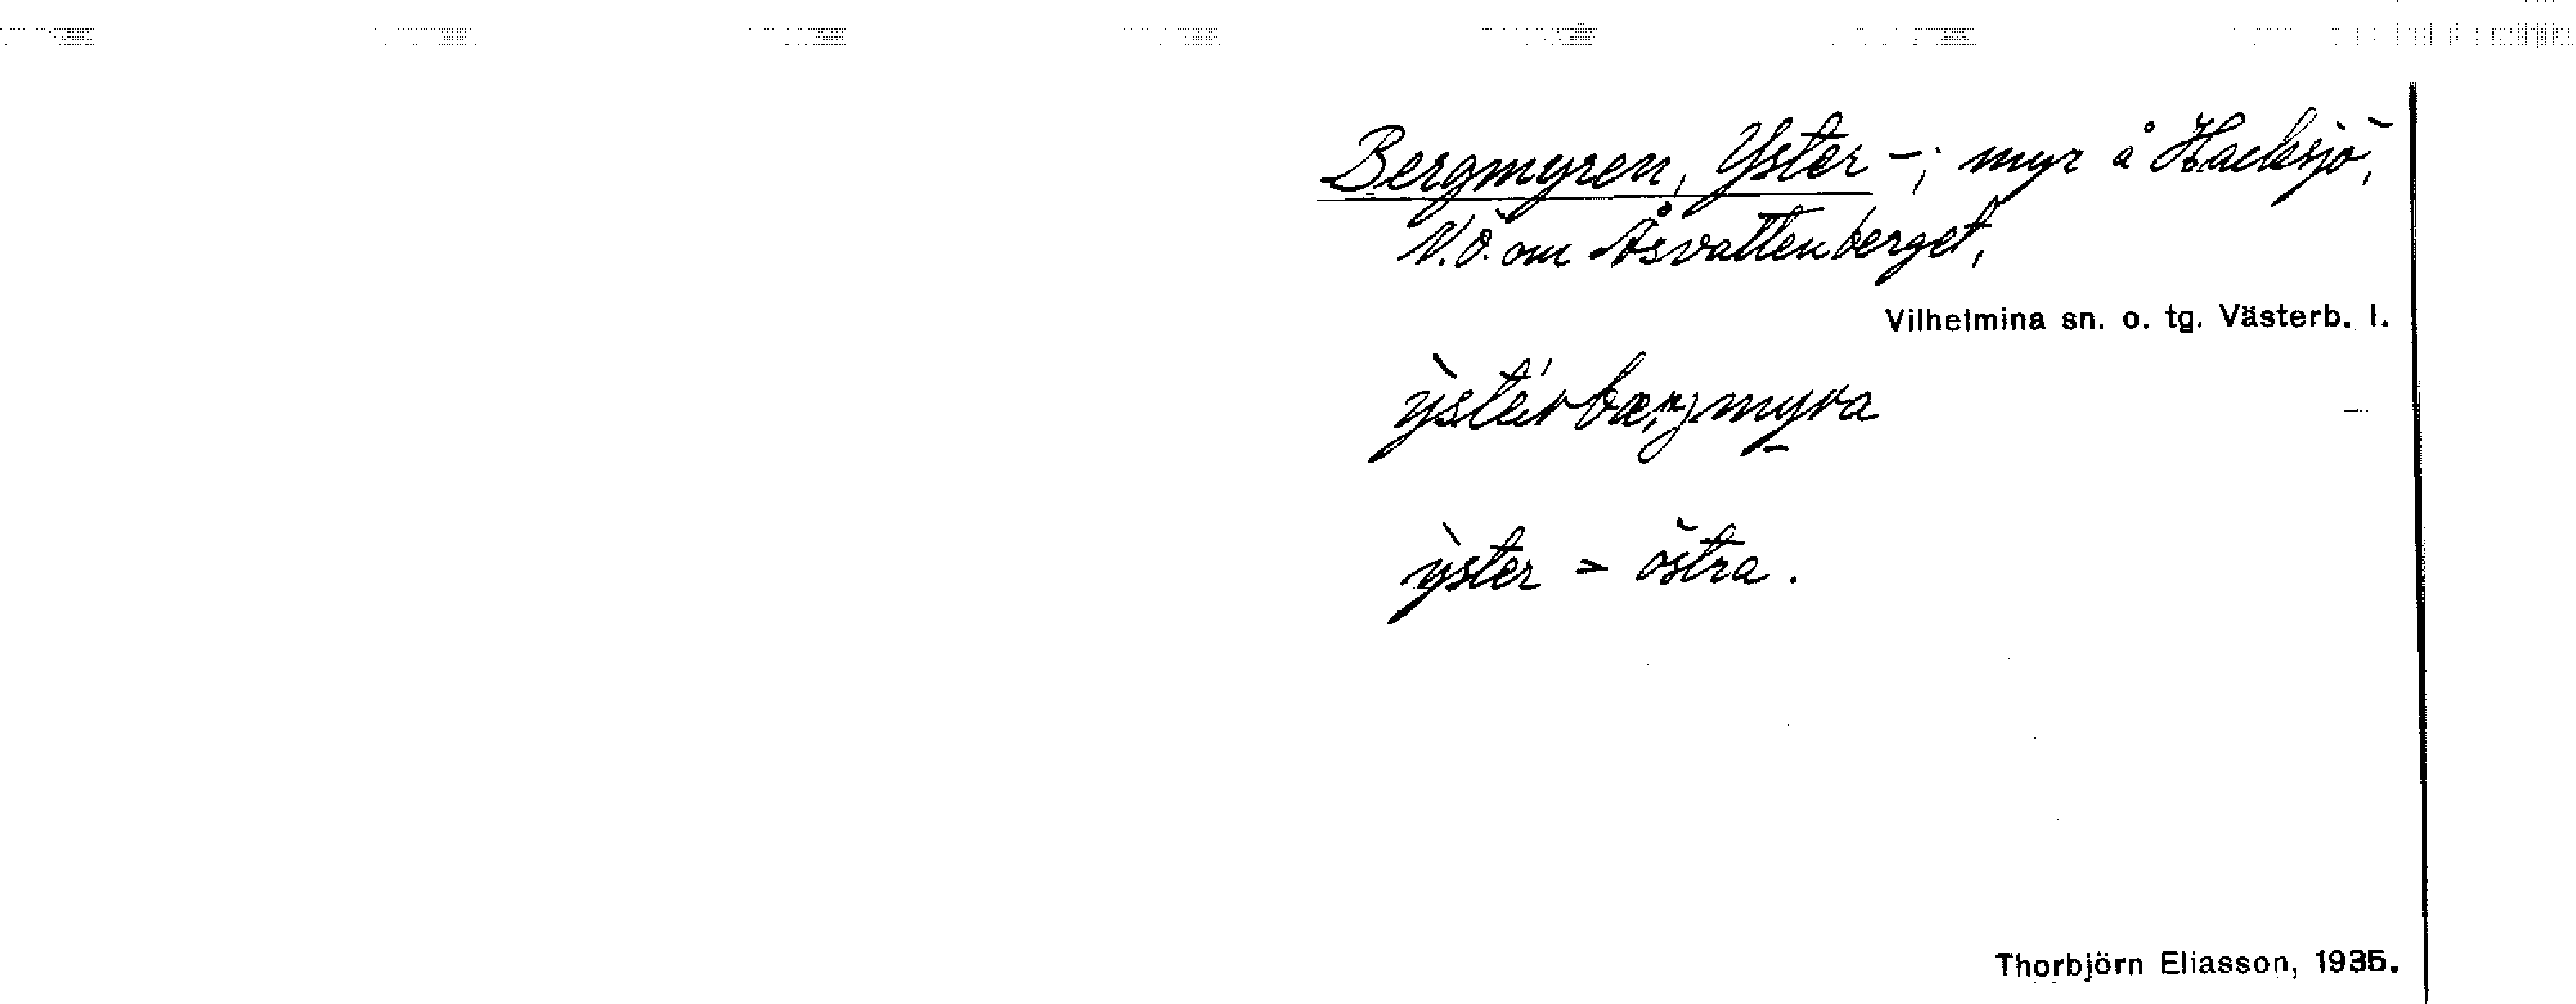 Bergmyren, Yster -; myr å Hacksjö,
N.Ö. om Åsvattenberget,
Vilhelmina sn. o. tg. Västerb. l.
ỳstérbærjmyra
ỳster = östra.
Thorbjörn Eliasson, 1935.